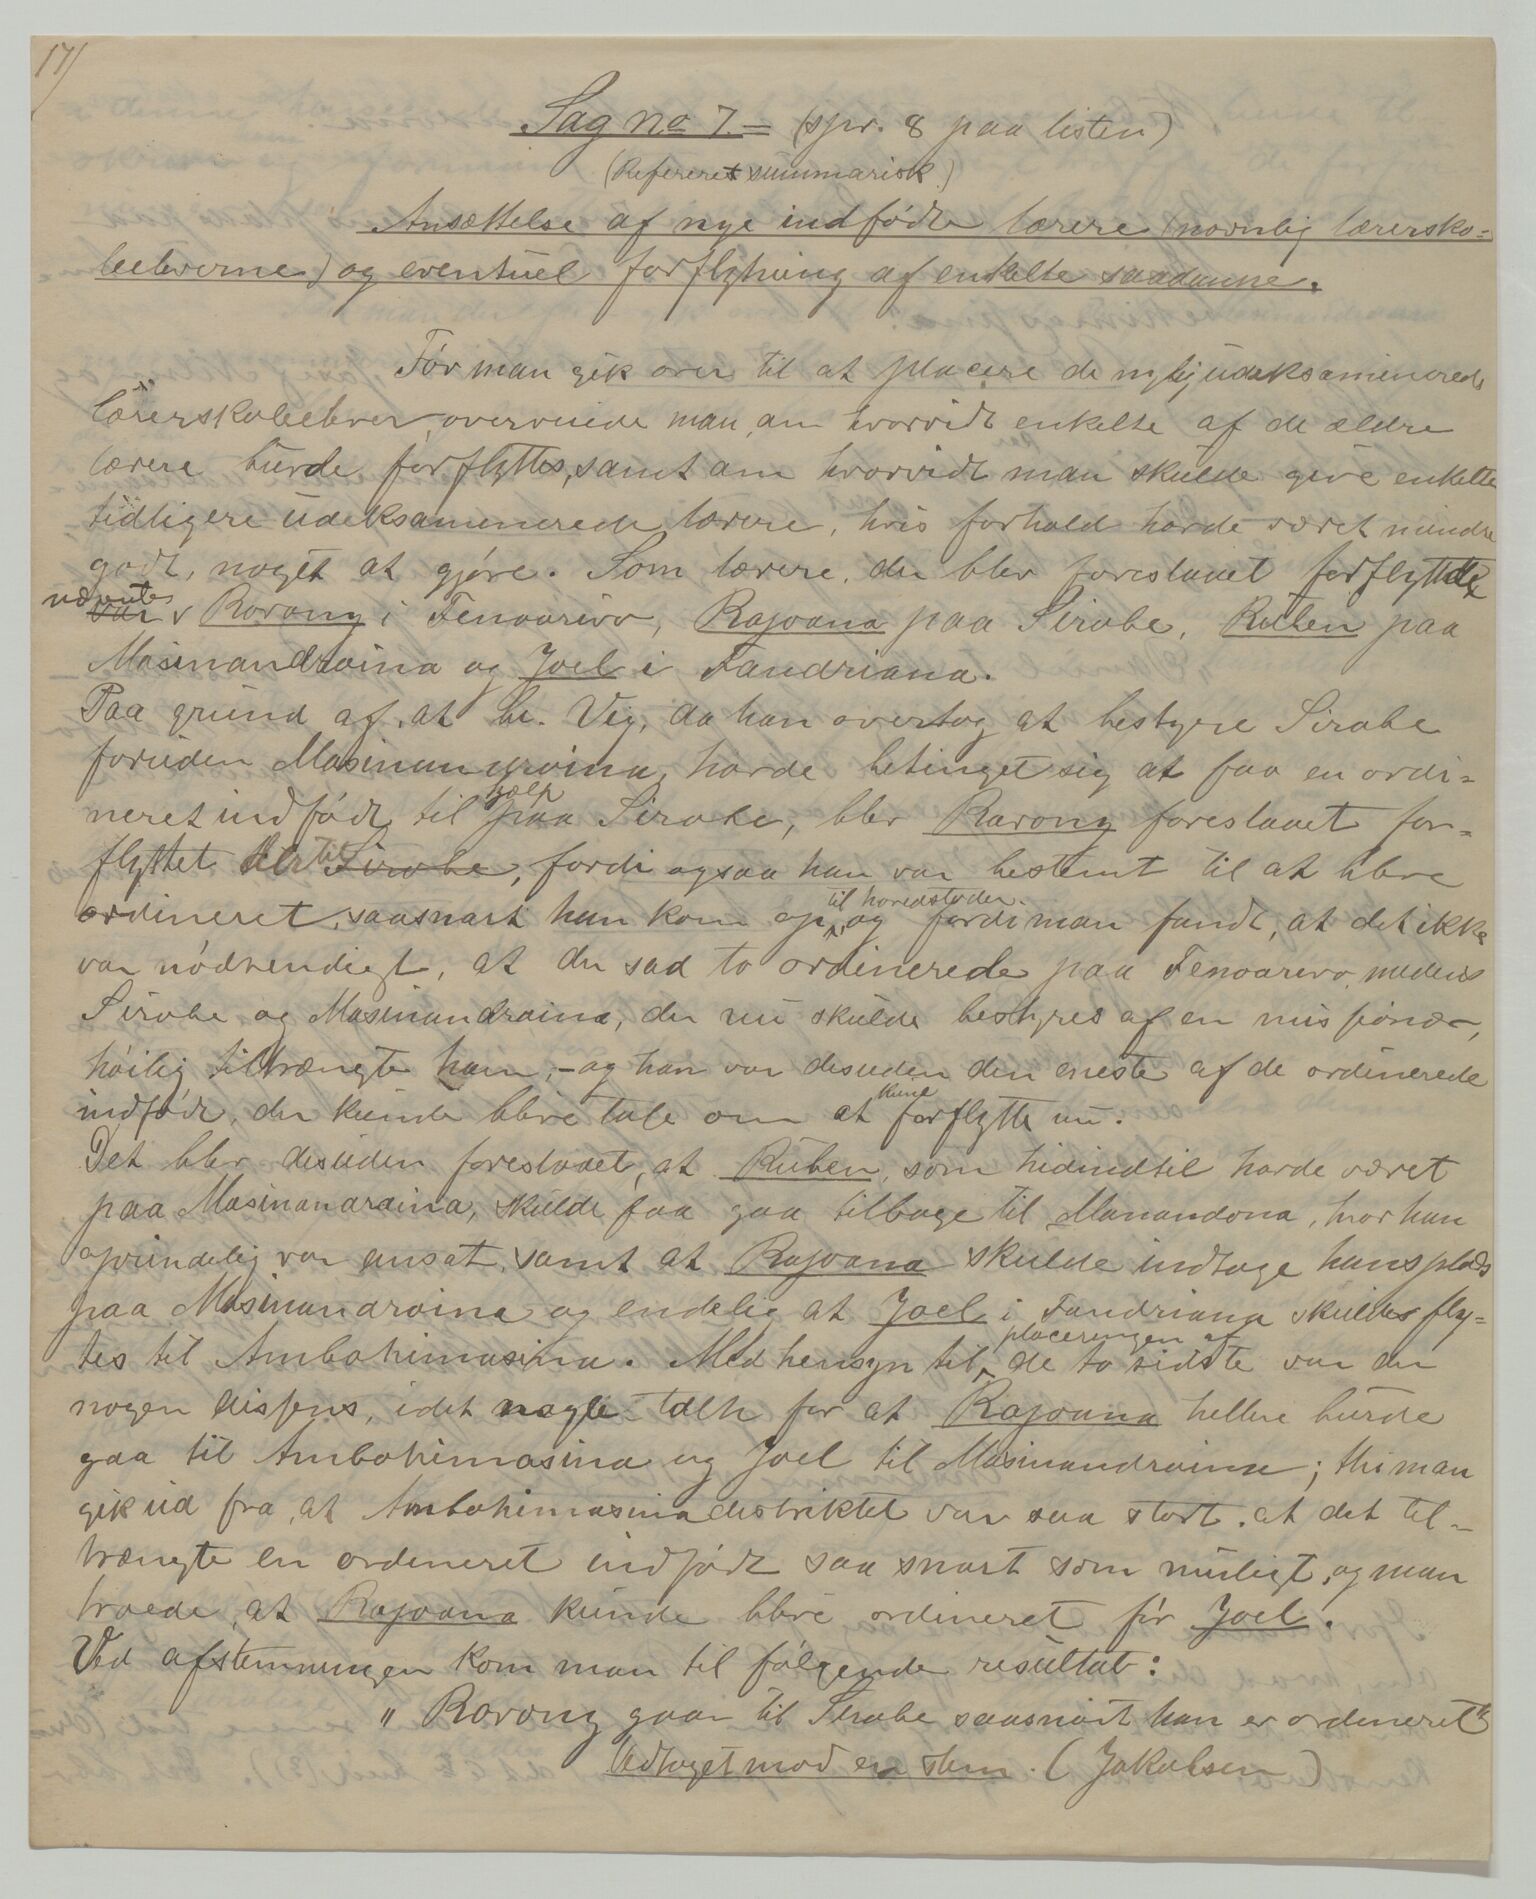 17/
Sag no 7 = (spr. 8 paa listen)
(Refereret summarisk.)
Ansættelse af nye indfødte lærere (navnlig lærersko-
leeleverne) og eventuel forflytning af enkelte saadanne.
Før man gik over til at placere de nylig udeksaminerede
lærerskoleelever, overveiede man, om hvorvidt enkelte af de ældre
lærere burde forflyttes, samt om hvorvidt man skulde give enkelte
tidligere udeksaminerede lærere, hvis forhold havde været mindre
godt, noget at gjøre. Som lærere, der blev foreslaaet forflyttede
nævntes
var Rarony i Fenoarivo, Rajoana paa Sirabe, Ruben paa
Masinandraina og Joel i Fandriana.
Paa grund af, at br. Vig, da han overtog at bestyre Sirabe
foruden Masinandraina, havde betinget sig at faa en ordi-
neret indfødt til hjælp paa Sirabe, blev Rarony foreslaaet for-
flyttet til Sirabe, fordi ogsaa han var bestemt til at blive
ordineret, saasnart han kom op til hovedstaden, og fordi man fandt, at det ikke
var nødvendigt, at der sad to ordinerede paa Fenoarivo, medens
Sirabe og Masinandraina, der nu skulde bestyres af en missionær,
høilig tiltrængte ham, - og han var desuden den eneste af de ordinerede
indfødte, der kunde blive tale om at kune forflytte nu.
Det blev desuden foreslaaet, at Ruben, som hidindtil havde været
paa Masinandraina, skulde faa gaa tilbage til Manandona, hvor han
oprindelig var ansat, samt at Rajoana skulde indtage hans plads
paa Masinandraina og endelig at Joel i Fandriana skulde fly-
tes til Ambohimasina. Med hensyn til placeringen af de to sidste var der
nogen disfens, idet nogle talte for at Rajoana hellere burde
gaa til Ambohimasina og Joel til Masinandraina; thi man
gik ud fra, at Ambohimasinadistriktet var saa stort, at det til-
trængte en ordineret indfødt saa snart som muligt, og man
troede, at Rajoana kunde blive ordineret før Joel.
Ved afstemningen kom man til følgende resultat:
" Rarony gaar til Sirabe saasnart han er ordineret"
Vedtaget mod en stem. (Jakobsen)